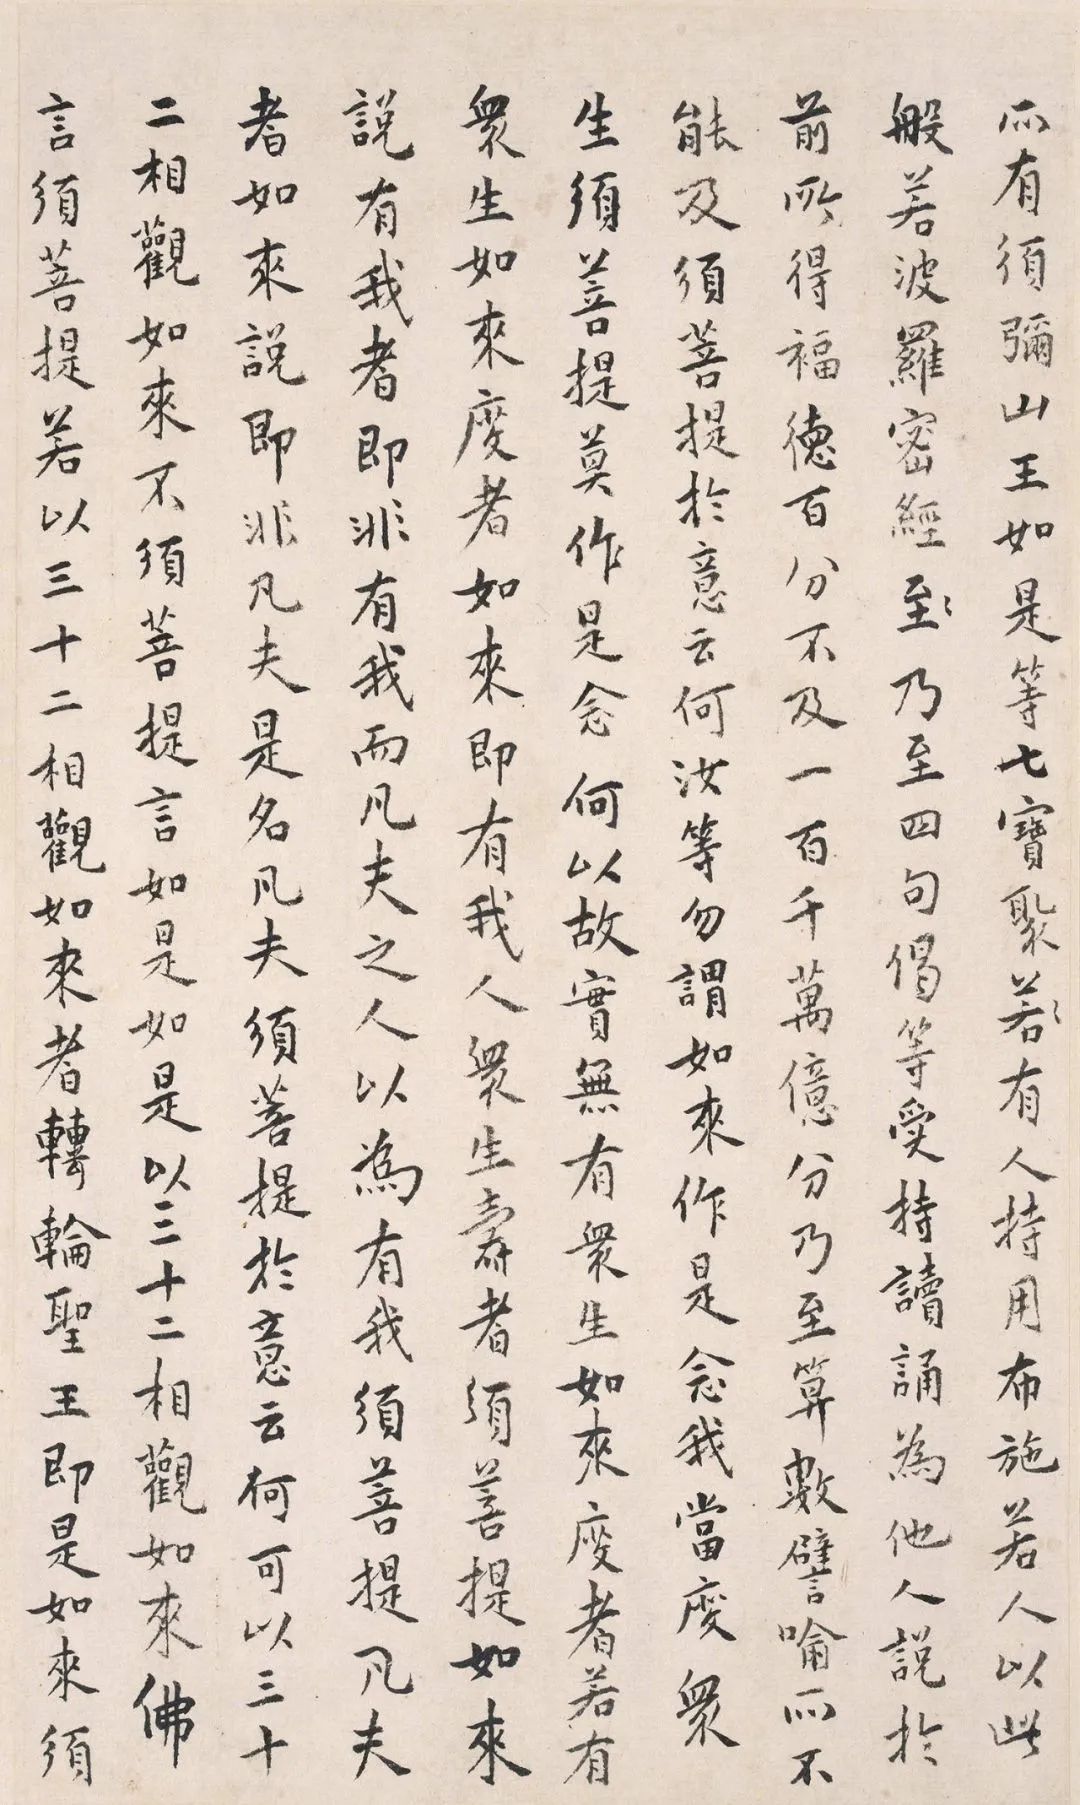 所有須彌山王如是等七寶聚若有人持用布施若人以此
般若波羅密經至乃至四句偈等受持讀誦為他人說於
前所得福德百分不及一百千萬億分乃至算數譬喻所不
能及須菩提於意云何汝等勿謂如來作是念我當度衆
生須菩提莫作是念何以故實無有衆生如來度者若有
衆生如來度者如來即有我人衆生壽者須菩提如來
說有我者即非有我而凡夫之人以為有我須菩提凡夫
者如來說即非凡夫是名凡夫須菩提於意云何可以三十
二相觀如來不須菩提言如是如是以三十二相觀如來佛
言須菩提若以三十二相觀如來者轉輪聖王即是如來須